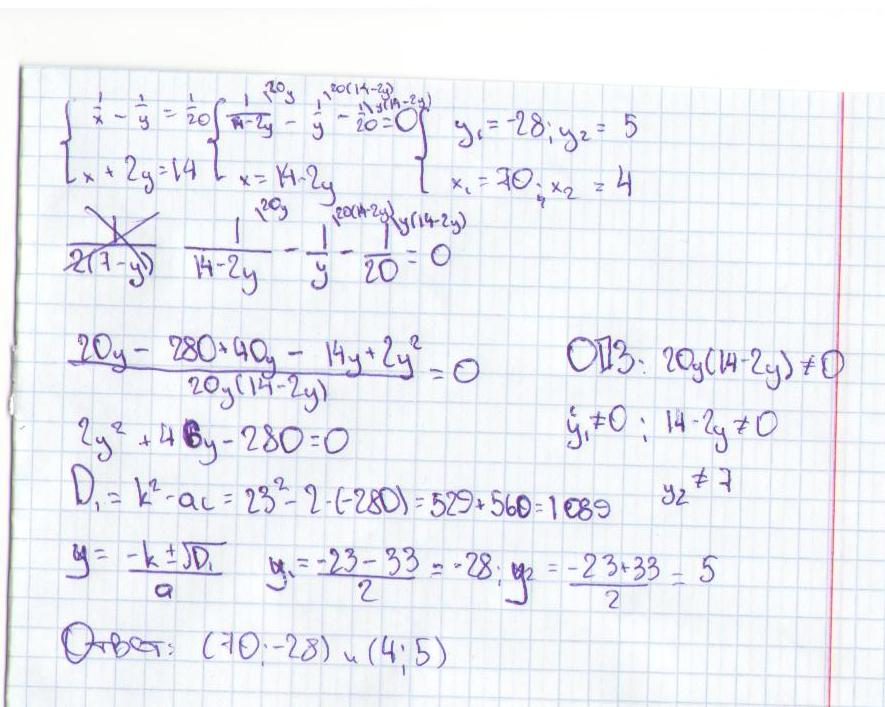 { 1/x - 1/y = 1/20 { 1/(14-2y) \20y - 1/y \20(14-2y) - 1/20 \y(14-2y) = 0 { y₁ = -28; y₂ = 5
{ x + 2y = 14 { x = 14-2y { x₁ = 70; x₂ = 4
1/(2(7-y)) 1/(14-2y) \20y - 1/y \20(14-2y) - 1/20 \y(14-2y) = 0
(20y - 280+40y - 14y+2y²)/(20y(14-2y)) = 0 ОПЗ: 20y(14-2y) ≠ 0
2y² + 46y - 280 = 0 y₁ ≠ 0 ; 14-2y ≠ 0
D₁ = k² - ac = 23² - 2·(-280) = 529+560 = 1089 y₂ ≠ 7
y = (-k ± √D₁)/a y₁ = (-23-33)/2 = -28; y₂ = (-23+33)/2 = 5
Ответ: (70;-28) и (4;5)